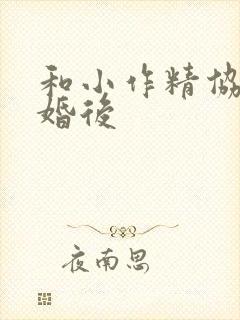 和小作精協
婚後
夜南思